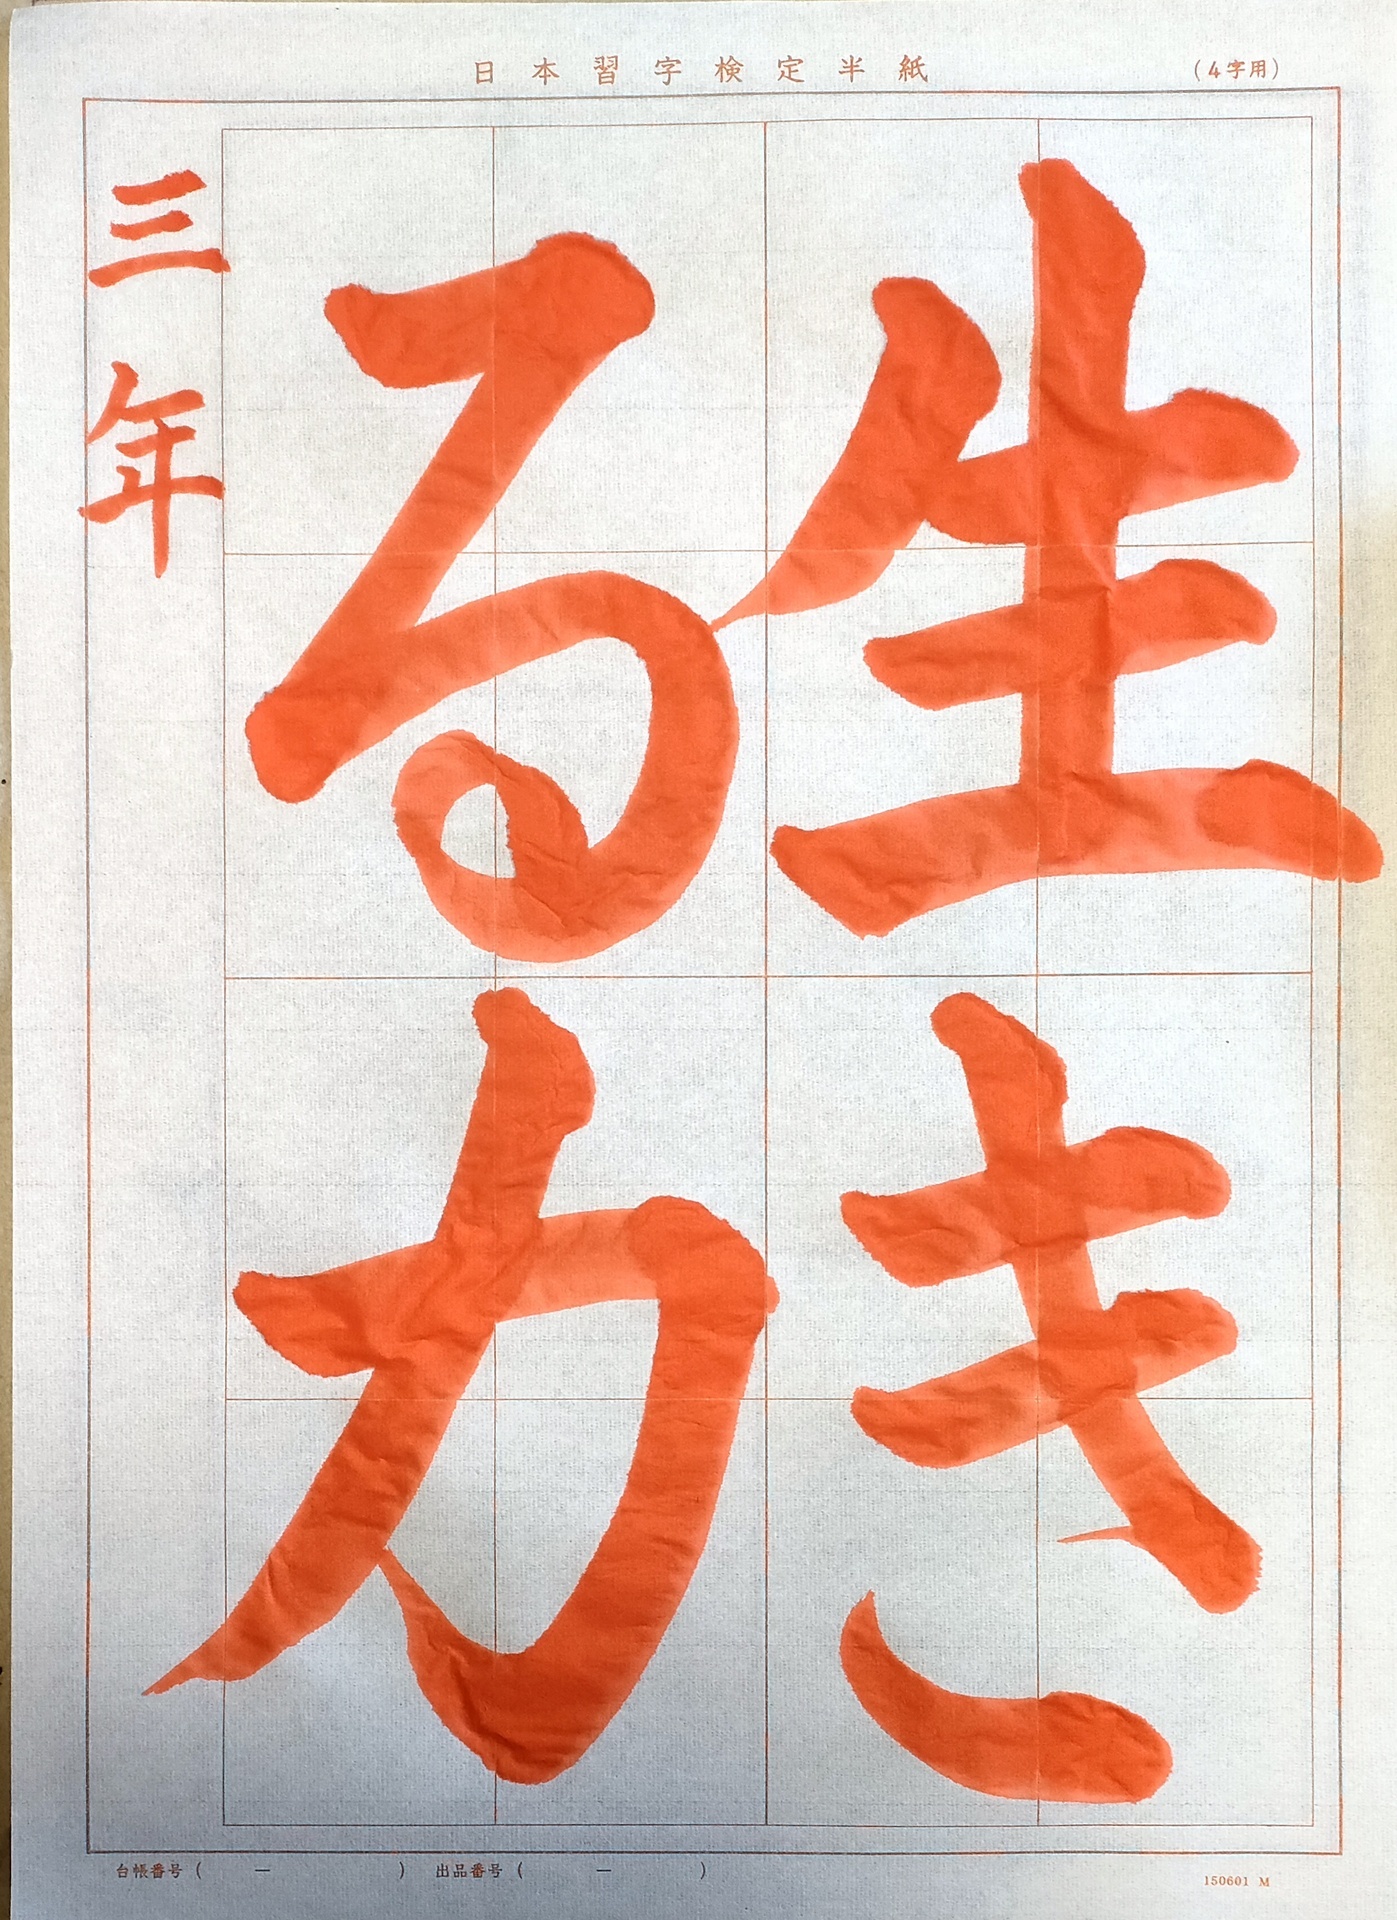 日本習字検定半紙
（4字用）
生き
る力
三年
台帳番号（　　ー　　）　出品番号（　　ー　　）
150601 M